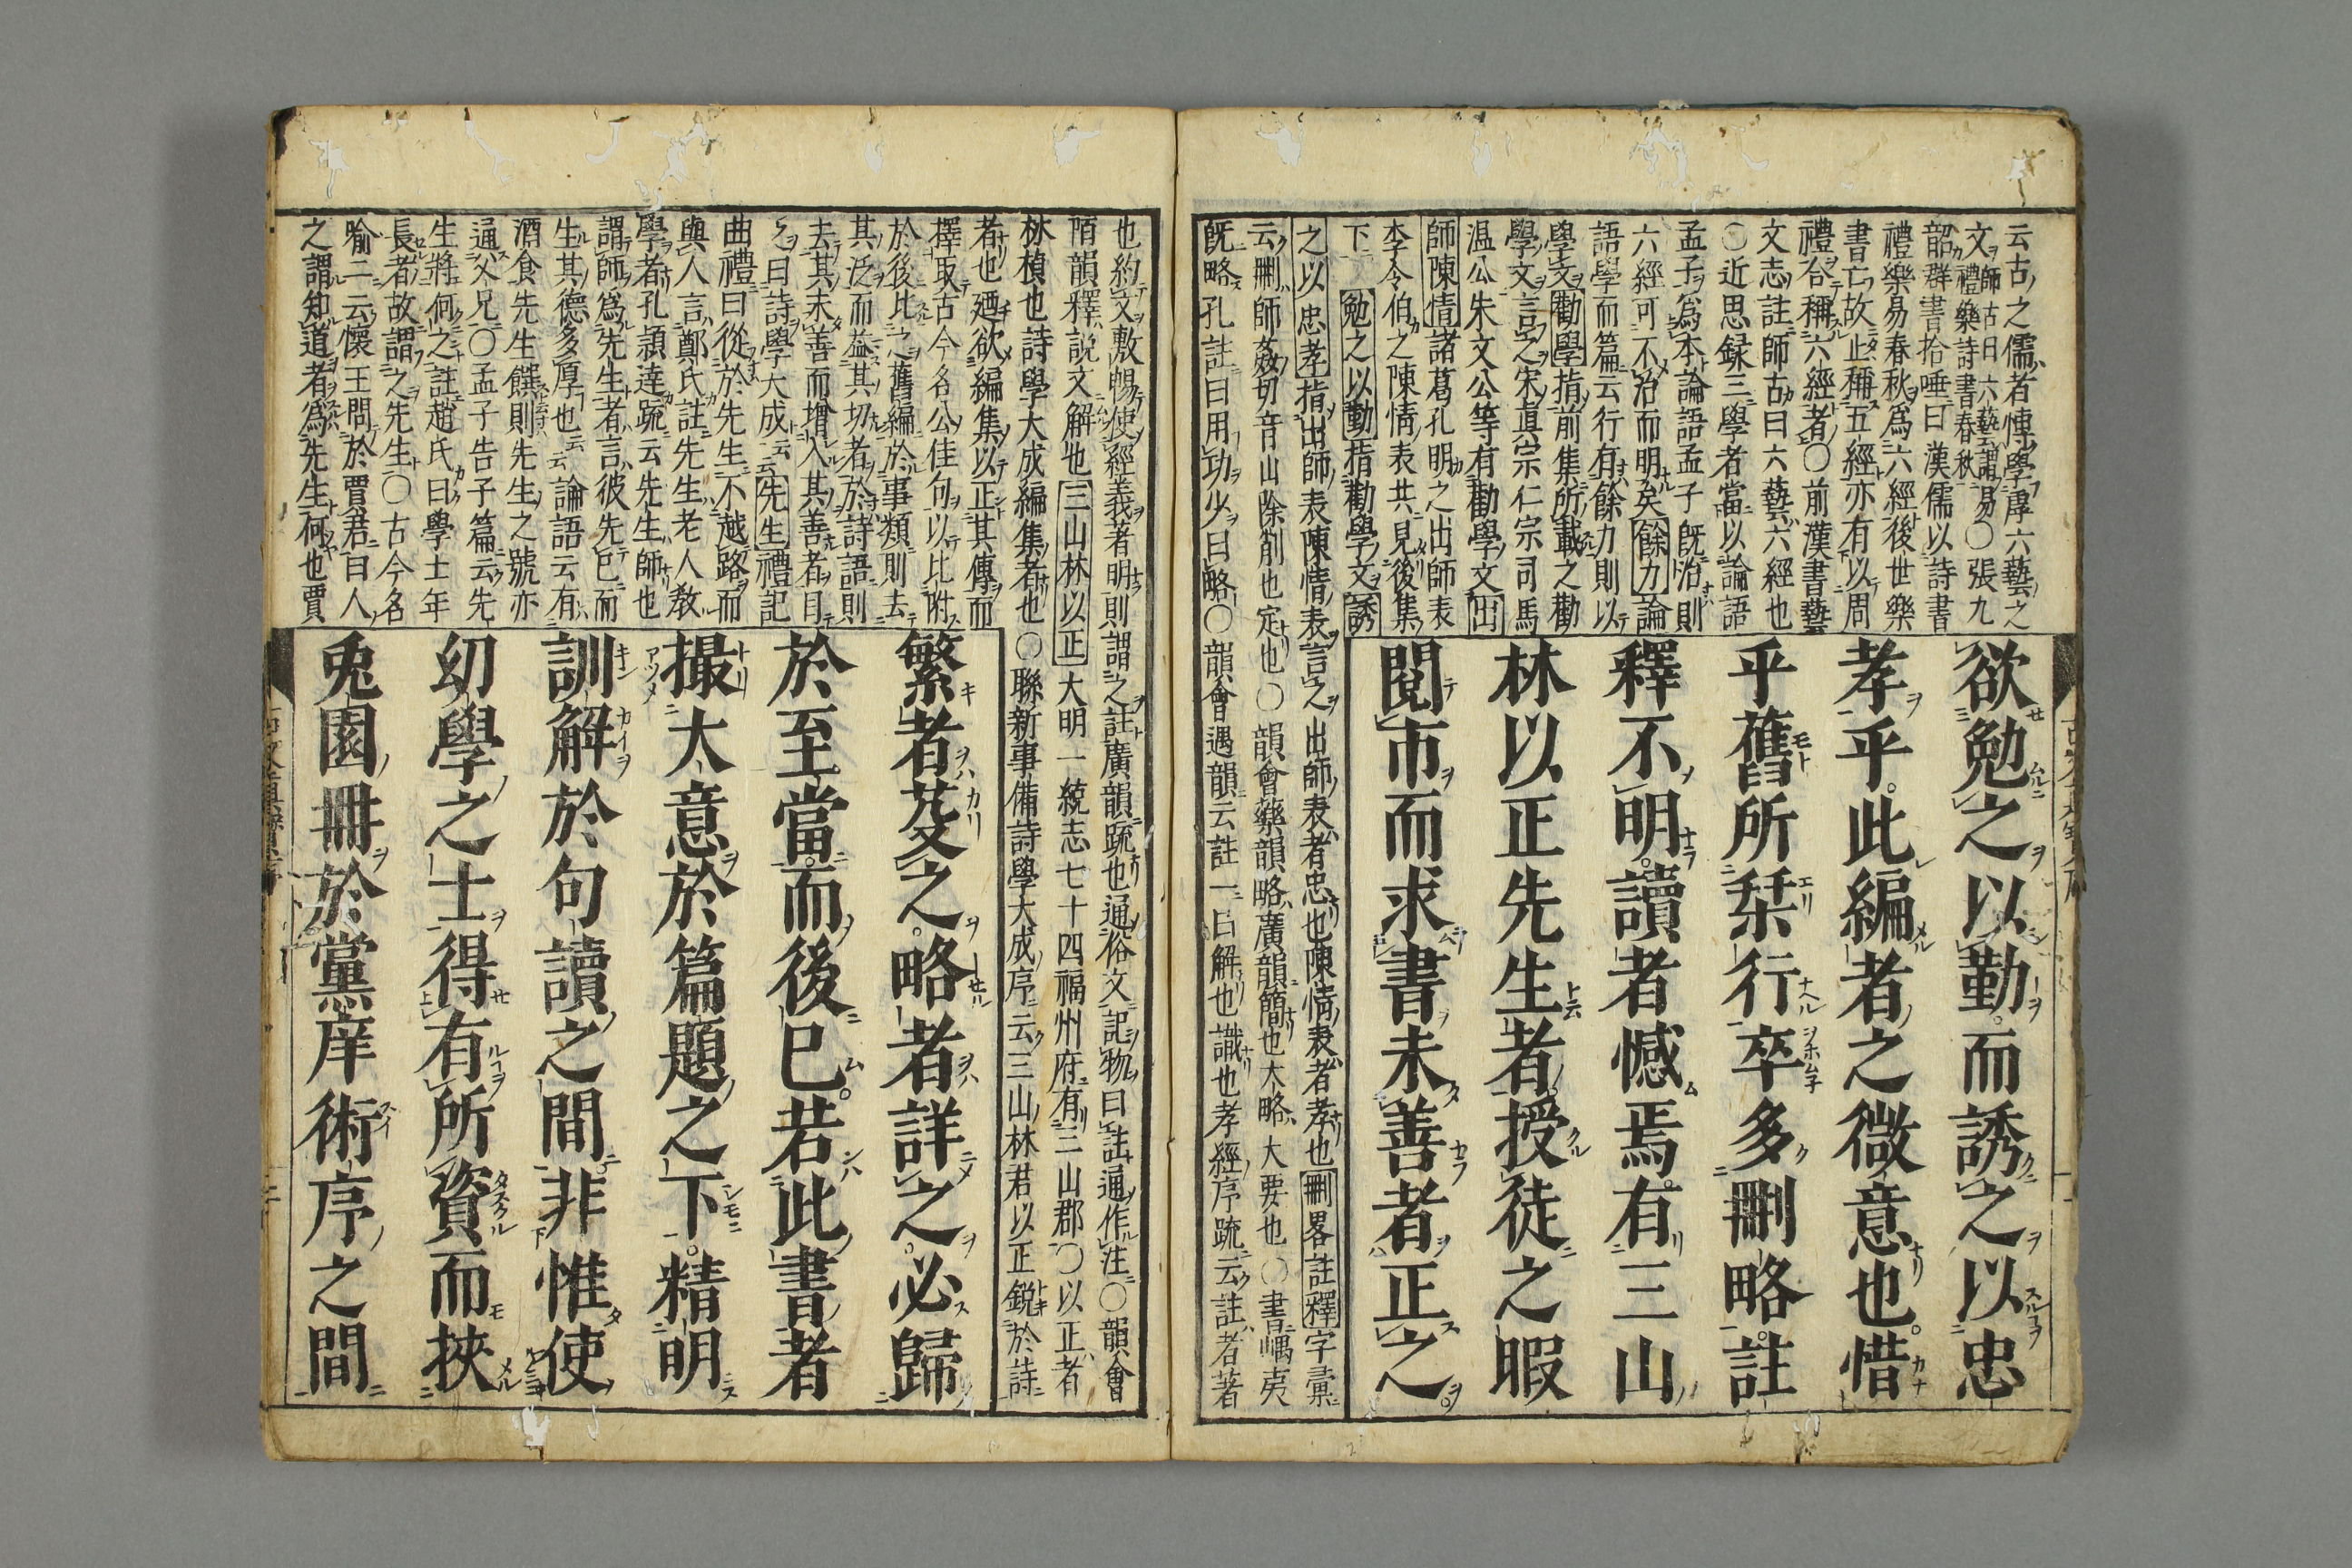 云古之儒者愽學虖六藝之
文師古曰六藝謂易禮樂詩書春秋〇張九
韶群書拾唾曰漢儒以詩書
禮樂易春秋爲六經後世樂
書亡故止稱五經亦有以周
禮合稱六經者〇前漢書藝
文志註師古曰六藝六經也
〇近思録三學者當以論語
孟子爲本論語孟子既治則
六經可不治而明矣餘力論
語學而篇云行有餘力則以
學文勸學指前集所載之勸
學文言之宋眞宗仁宗司馬
温公朱文公等有勸學文出
師陳情諸葛孔明之出師表
李令伯之陳情表共見後集
下勉之以勤指勸學文誘
之以忠孝指出師表陳情表言之出師表者忠也陳情表者孝也刪畧註釋字彙
云刪師姦切音山除削也定也〇韻會藥韻略廣韻簡也大略大要也〇書嵎夷
既略孔註曰用功少曰略〇韻會遇韻云註一曰解也識也孝經序疏云註者著
欲勉之以勤而誘之以忠
孝乎此編者之微意也惜
乎舊所栞行卒多刪略註
釋不明讀者憾焉有三山
林以正先生者授徒之暇
閲市而求書未善者正之
也約文敷暢使經義著明則謂之註廣韻疏也通俗文記物曰註通作注〇韻會
陌韻釋説文解也三山林以正大明一統志七十四福州府有三山郡〇以正者
林楨也詩學大成編集者也〇聯新事備詩學大成序云三山林君以正鋭於詩
者也廼欲編集以正其傳而
擇取古今名公佳句以比附
於後比之舊編於事類則去
其泛而益其切者於詩語則
去其末善而增入其善者目
之曰詩學大成云云先生禮記
曲禮曰從於先生不越路而
與人言鄭氏註先生老人教
學者孔頴達疏云先生師也
謂師爲先生者言彼先已而
生其德多厚也云云論語云有
酒食先生饌則先生之號亦
通父兄〇孟子告子篇云先
生將何之註趙氏曰學士年
長者故謂之先生〇古今名
喩二云懷王問於賈君曰人
之謂知道者爲先生何也賈
繁者芟之略者詳之必歸
於至當而後已若此書者
撮大意於篇題之下精明
訓解於句讀之間非惟使
幼學之士得有所資而挾
兎園冊於黨庠術序之間